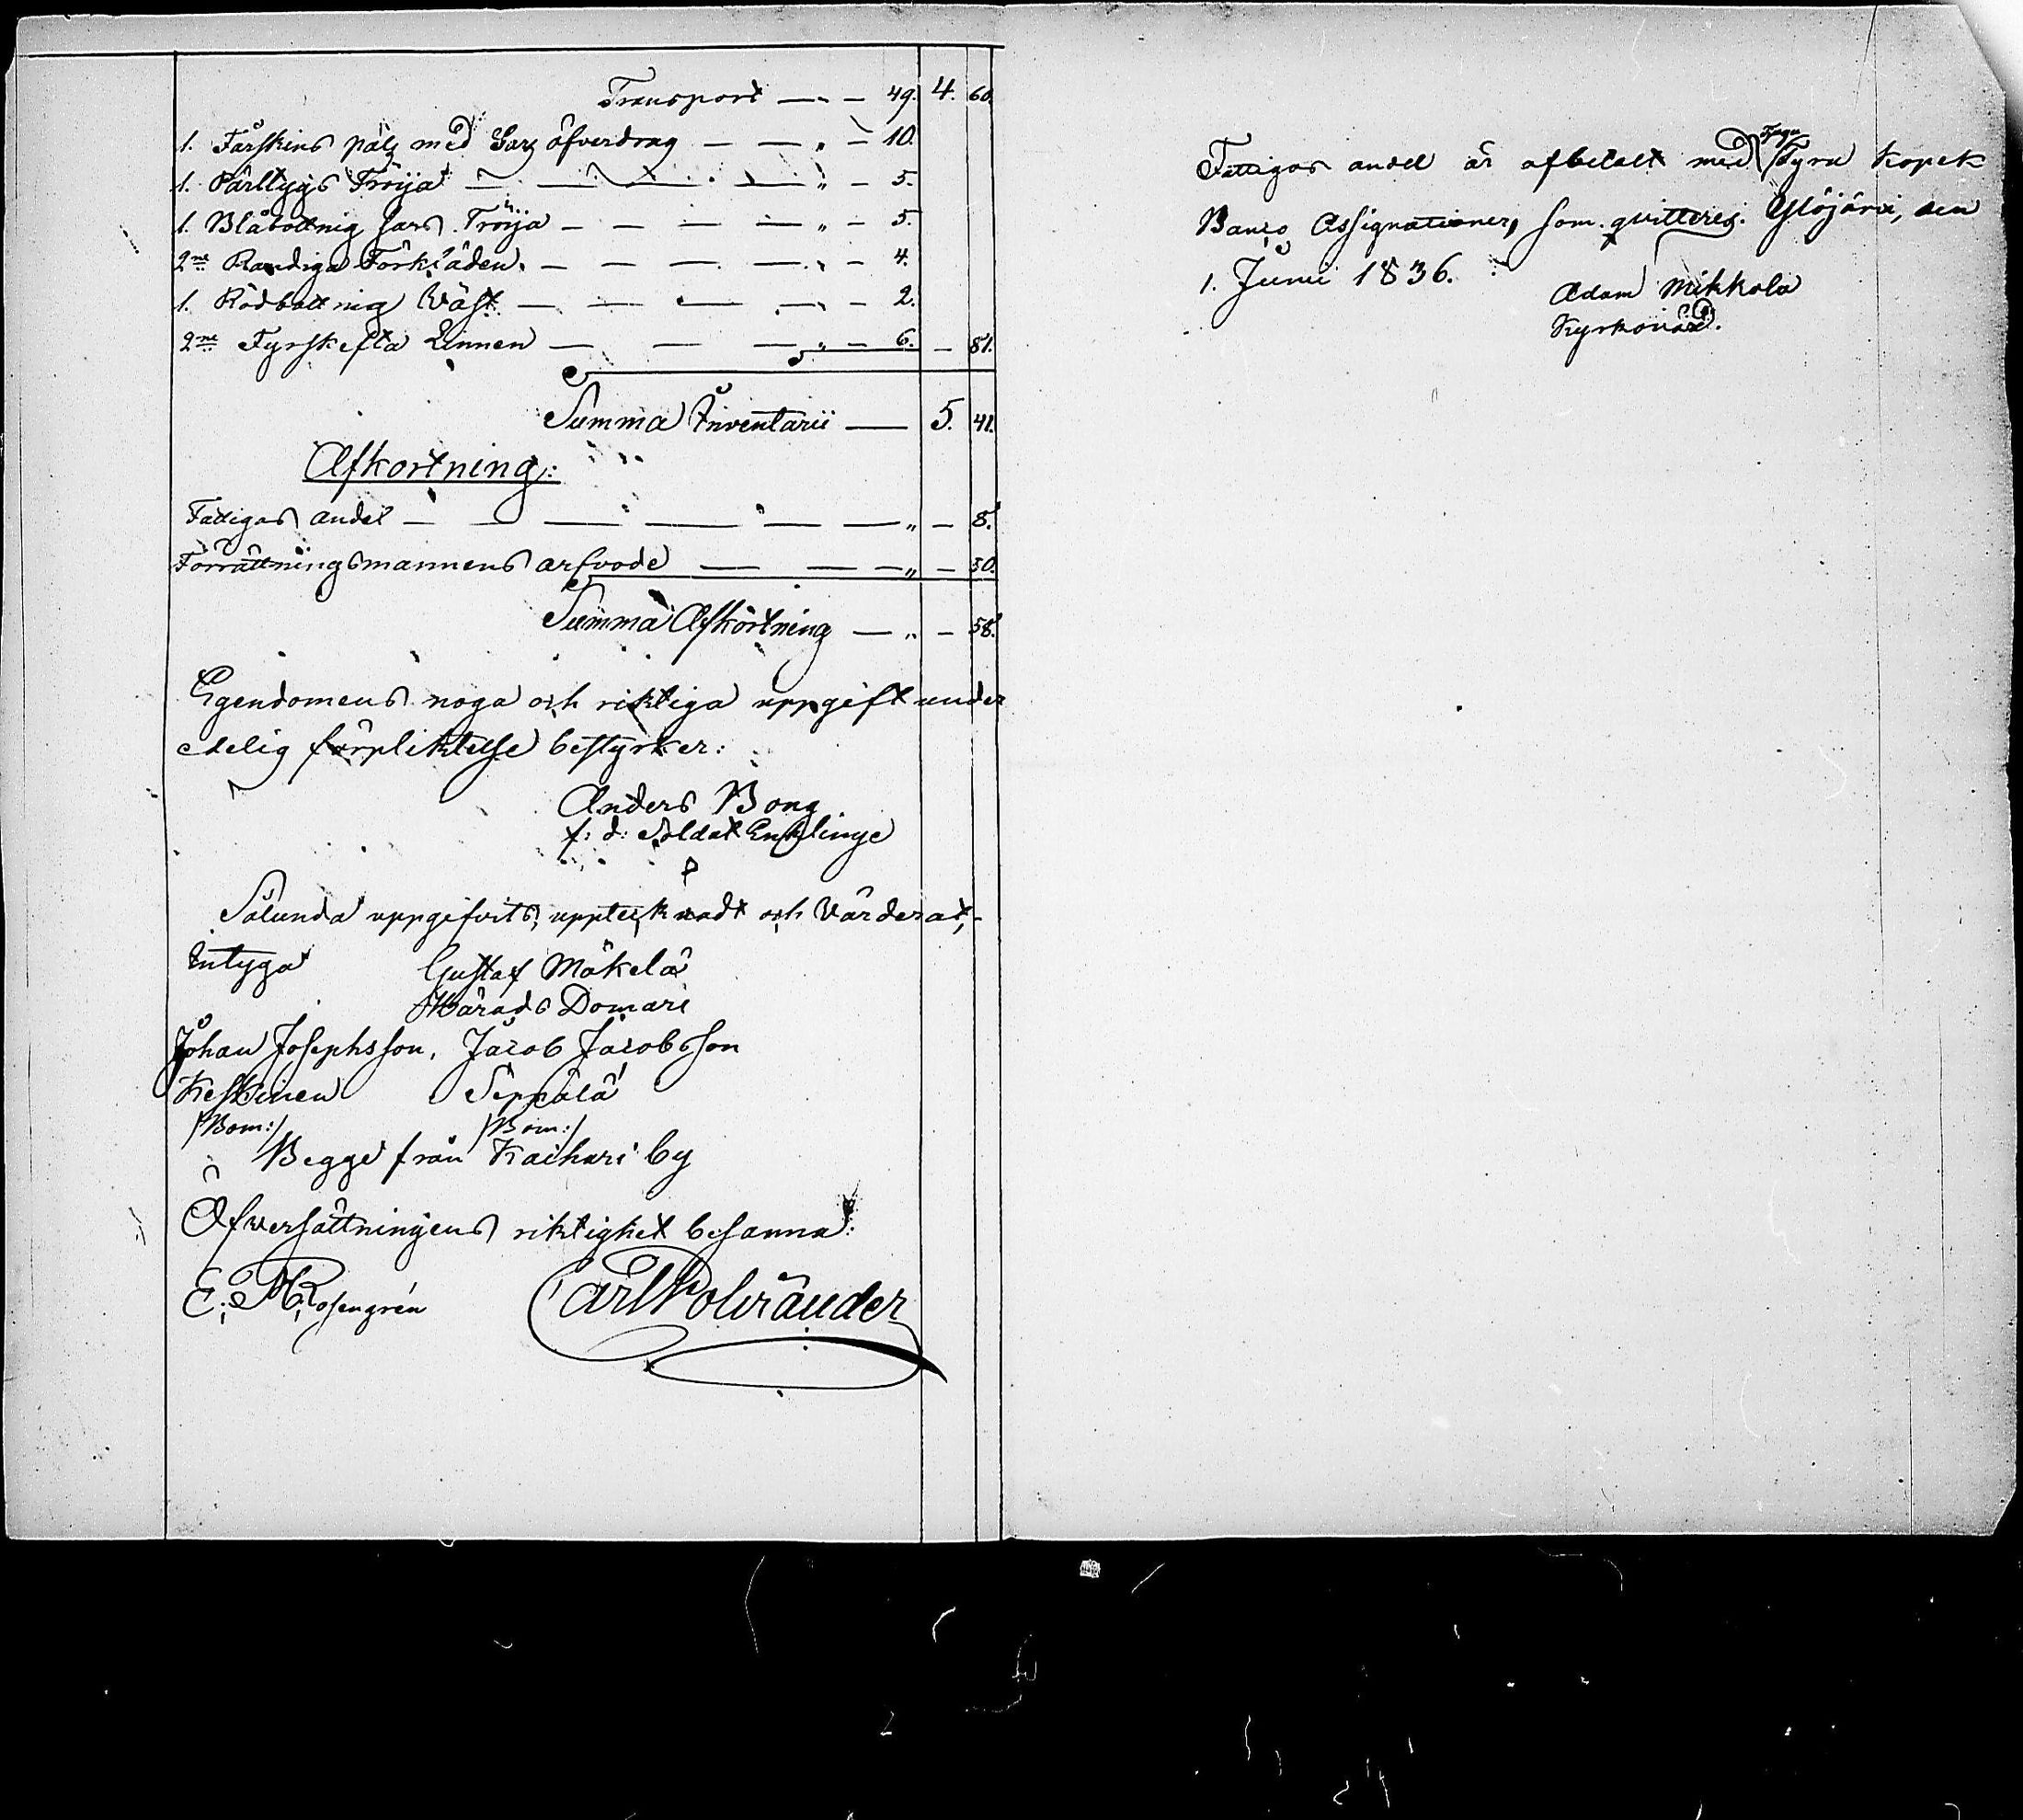 Transport — „ — 49. 4. 60.
1. Fårskins päls med Sarz öfverdrag — — „ — 10.
1. Pärltygs Tröija — — — „ — 5.
1. Blåbottnig sars Tröija — — — — „ — 5.
2ne Randiga Förkläden — — — — „ — 4.
1. Rödbottnig Wäst — — — — „ — 2.
2ne Fyrskefta Linnen — — — „ — 6. — 81.
Summa Inventarii — 5. 41.
Afkortning:
Fattigas andel — — — — — — „ — 8.
Förrättningsmannens arfvode — — — „ — 50.
Summa Afkortning — „ — 58.
Egendomens noga och riktiga uppgift under
edelig förpliktelse bestyrker:
Anders Bong
f: d: Soldat Enklinge
Sålunda uppgifvits, upptecknadt och Värderat,
Intyga Gustaf Mäkelä
Härads Domare
Johan Josephsson, Jacob Jacobsson
Keskinen Seppälä
/Bom:/ /Bom:/
Begge från Kaihari by
Öfversättningens riktighet besanna:
E: Rosengrén Carl Polviander
Fattigas andel är afbetalt med Tjugu Fyra Kopek
Banco Assignationer, som qvitteres. Ylöjärvi, den
1. Junii 1836.
Adam Mikkola
Kyrkovärd.